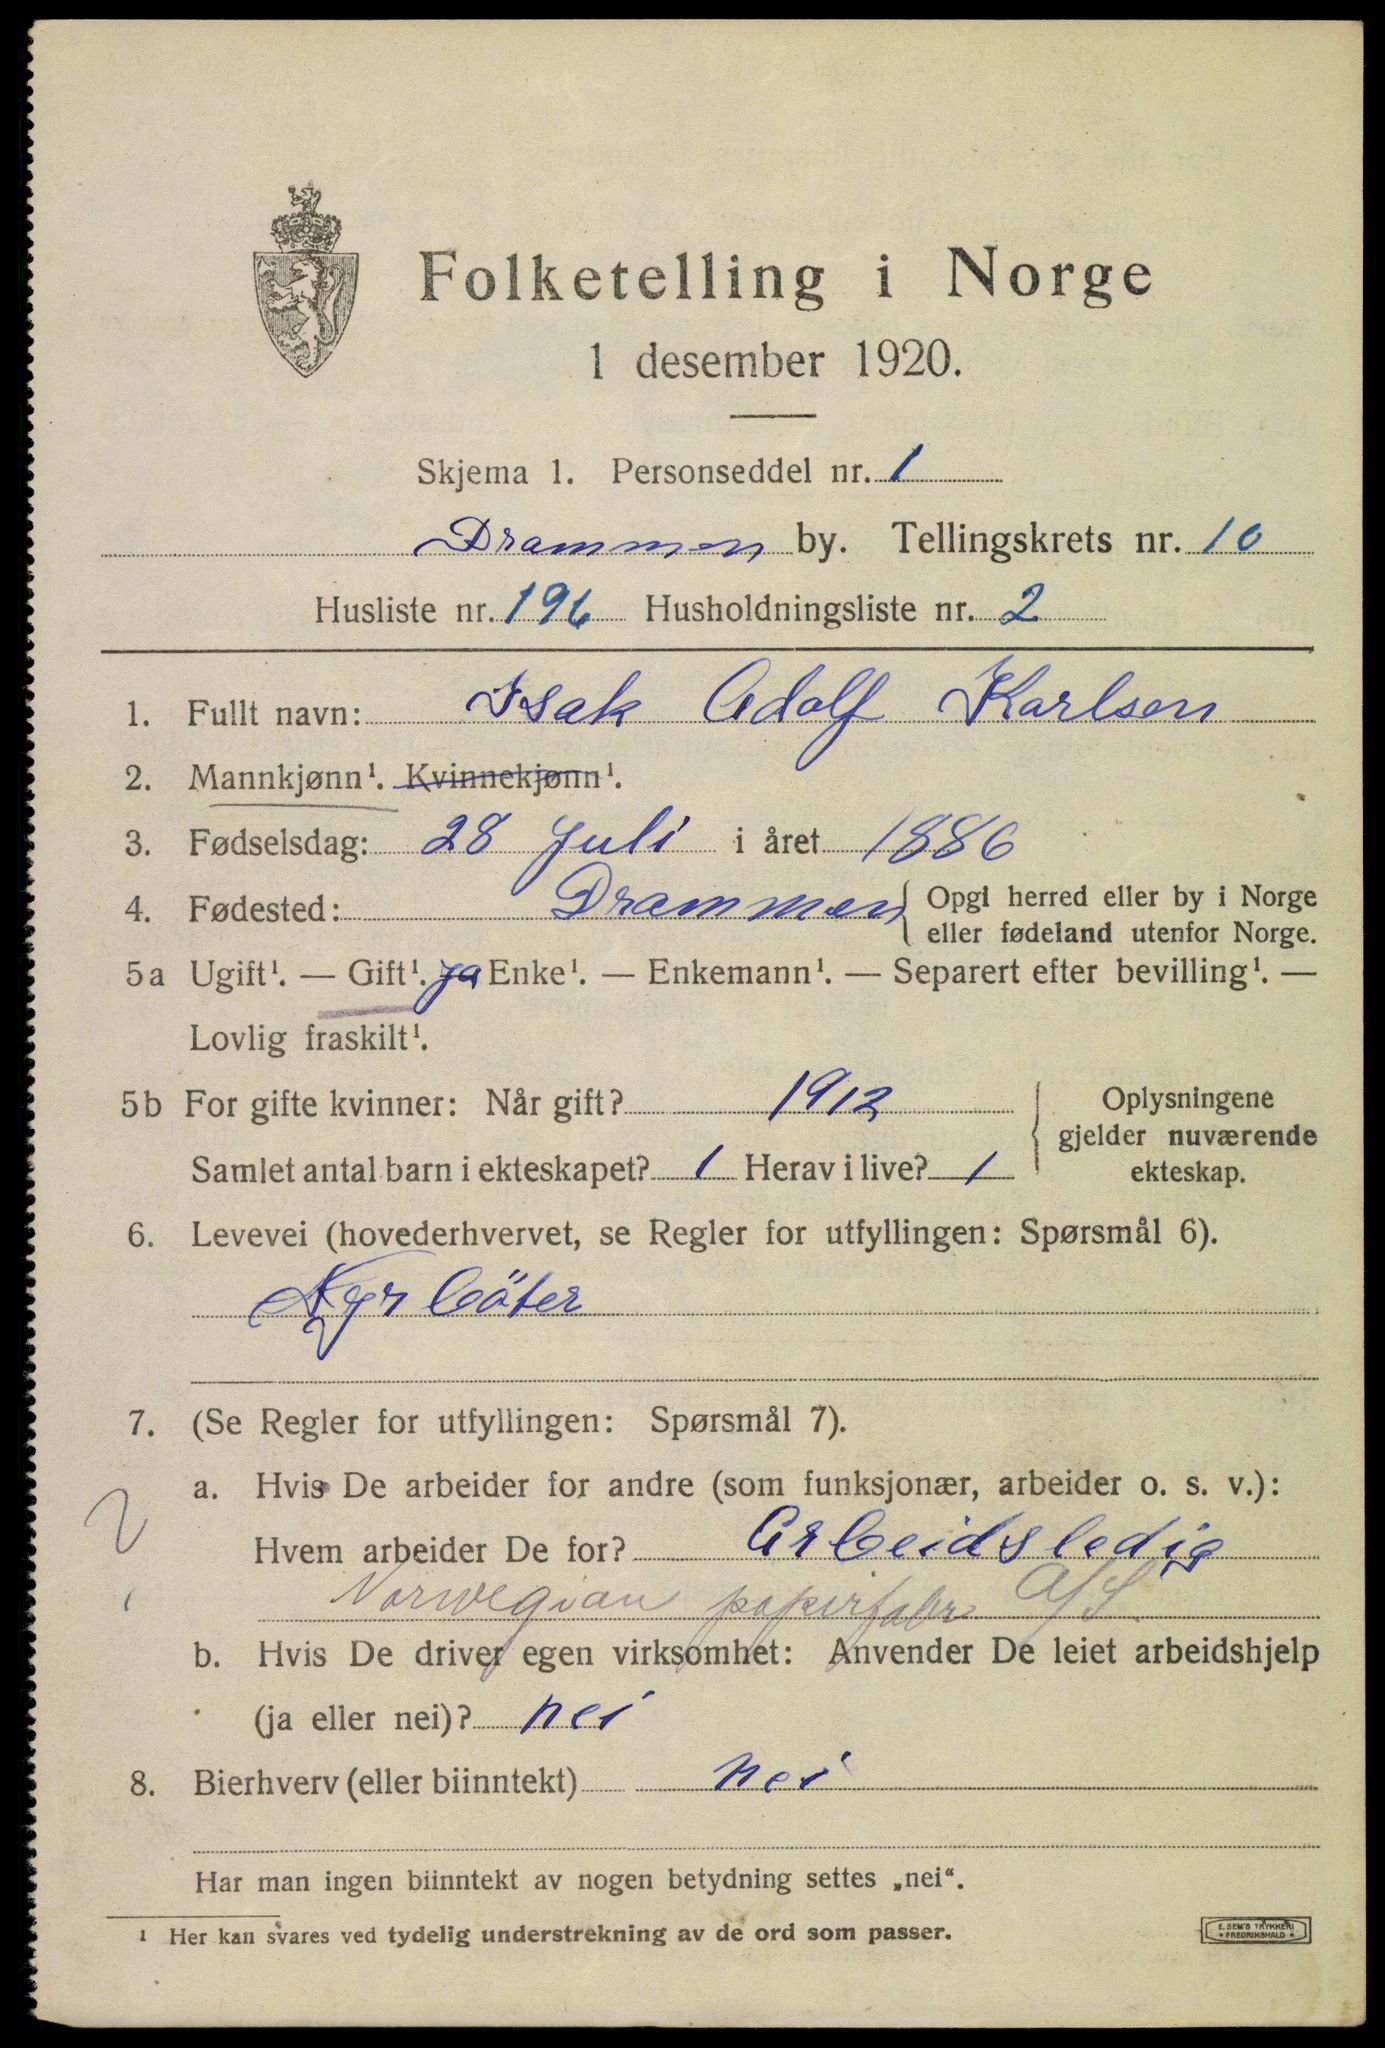 Folketelling i Norge
1 desember 1920.
Skjema 1. Personseddel nr. 1
Drammen by. Tellingskrets nr. 10
Husliste nr. 196 Husholdningsliste nr. 2
1. Fullt navn: Isak Adolf Karlsen
2. Mannkjønn¹. Kvinnekjønn¹.
3. Fødselsdag: 28 Juli i året 1886
4. Fødested: Drammen { Opgi herred eller by i Norge
eller fødeland utenfor Norge.
5a Ugift¹. — Gift¹. ja Enke¹. — Enkemann¹. — Separert efter bevilling¹. —
Lovlig fraskilt¹.
5b For gifte kvinner: Når gift? 1912
Samlet antal barn i ekteskapet? 1 Herav i live? 1
Oplysningene
gjelder nuværende
ekteskap.
6. Levevei (hovederhvervet, se Regler for utfyllingen: Spørsmål 6).
7. (Se Regler for utfyllingen: Spørsmål 7).
a. Hvis De arbeider for andre (som funksjonær, arbeider o. s. v.):
Hvem arbeider De for? Arbeidsledig
Norwegian papirfabr A/S.
b. Hvis De driver egen virksomhet: Anvender De leiet arbeidshjelp
(ja eller nei)? nei
8. Bierhverv (eller biinntekt) nei
Har man ingen biinntekt av nogen betydning settes „nei“.
¹ Her kan svares ved tydelig understrekning av de ord som passer.
E. SEM'S TRYKKERI
FREDRIKSHALD